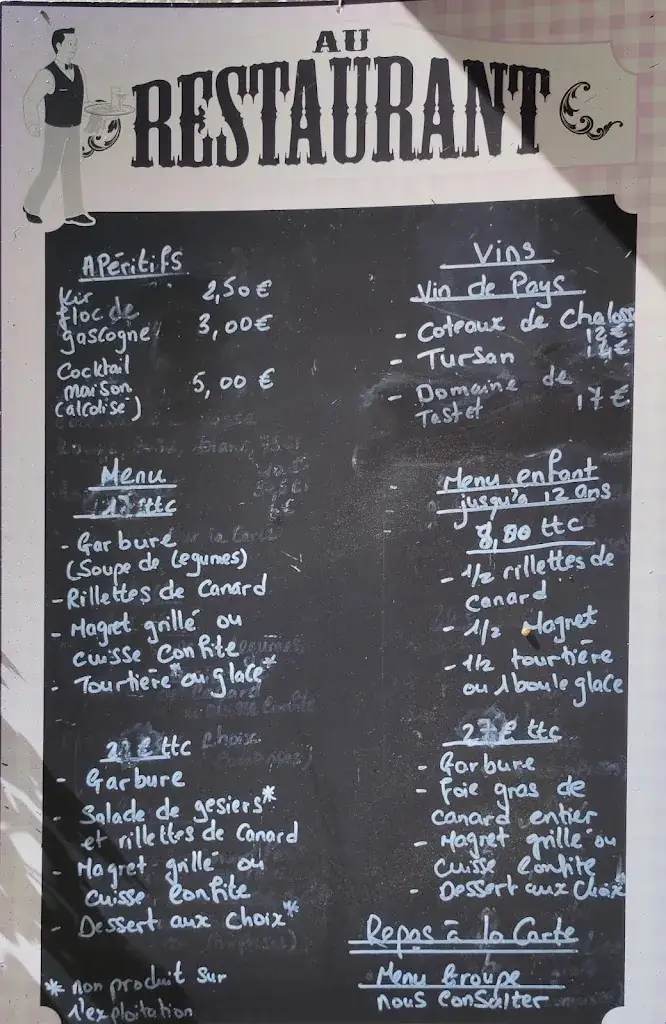 AU
RESTAURANT
Apéritifs
Kir 2,50 €
floc de
gascogne 3,00 €
Cocktail
maison 5,00 €
(alcolisé)
Vins
Vin de Pays
- Coteaux de Chaloss
12 €
- Tursan 14 €
- Domaine de
Tastet 17 €
Menu
ttc
- Garbure
(Soupe de Legumes)
- Rillettes de Canard
- Magret grillé ou
cuisse Confite
- Tourtière* ou glace*
Menu enfant
jusqu'à 12 ans
8,80 ttc
- 1/2 rillettes de
Canard
- 1/2 Magret
- 1/2 tourtière
ou 1 boule glace
€ ttc
- Garbure
- Salade de gesiers*
et rillettes de Canard
- Magret grillé ou
cuisse Confite
- Dessert aux Choix*
27 € ttc
- Garbure
- Foie gras de
canard entier
- Magret grillé ou
cuisse Confite
- Dessert aux Choix
Repas à la Carte
Menu Groupe
nous Consulter
* non produit sur
l'exploitation